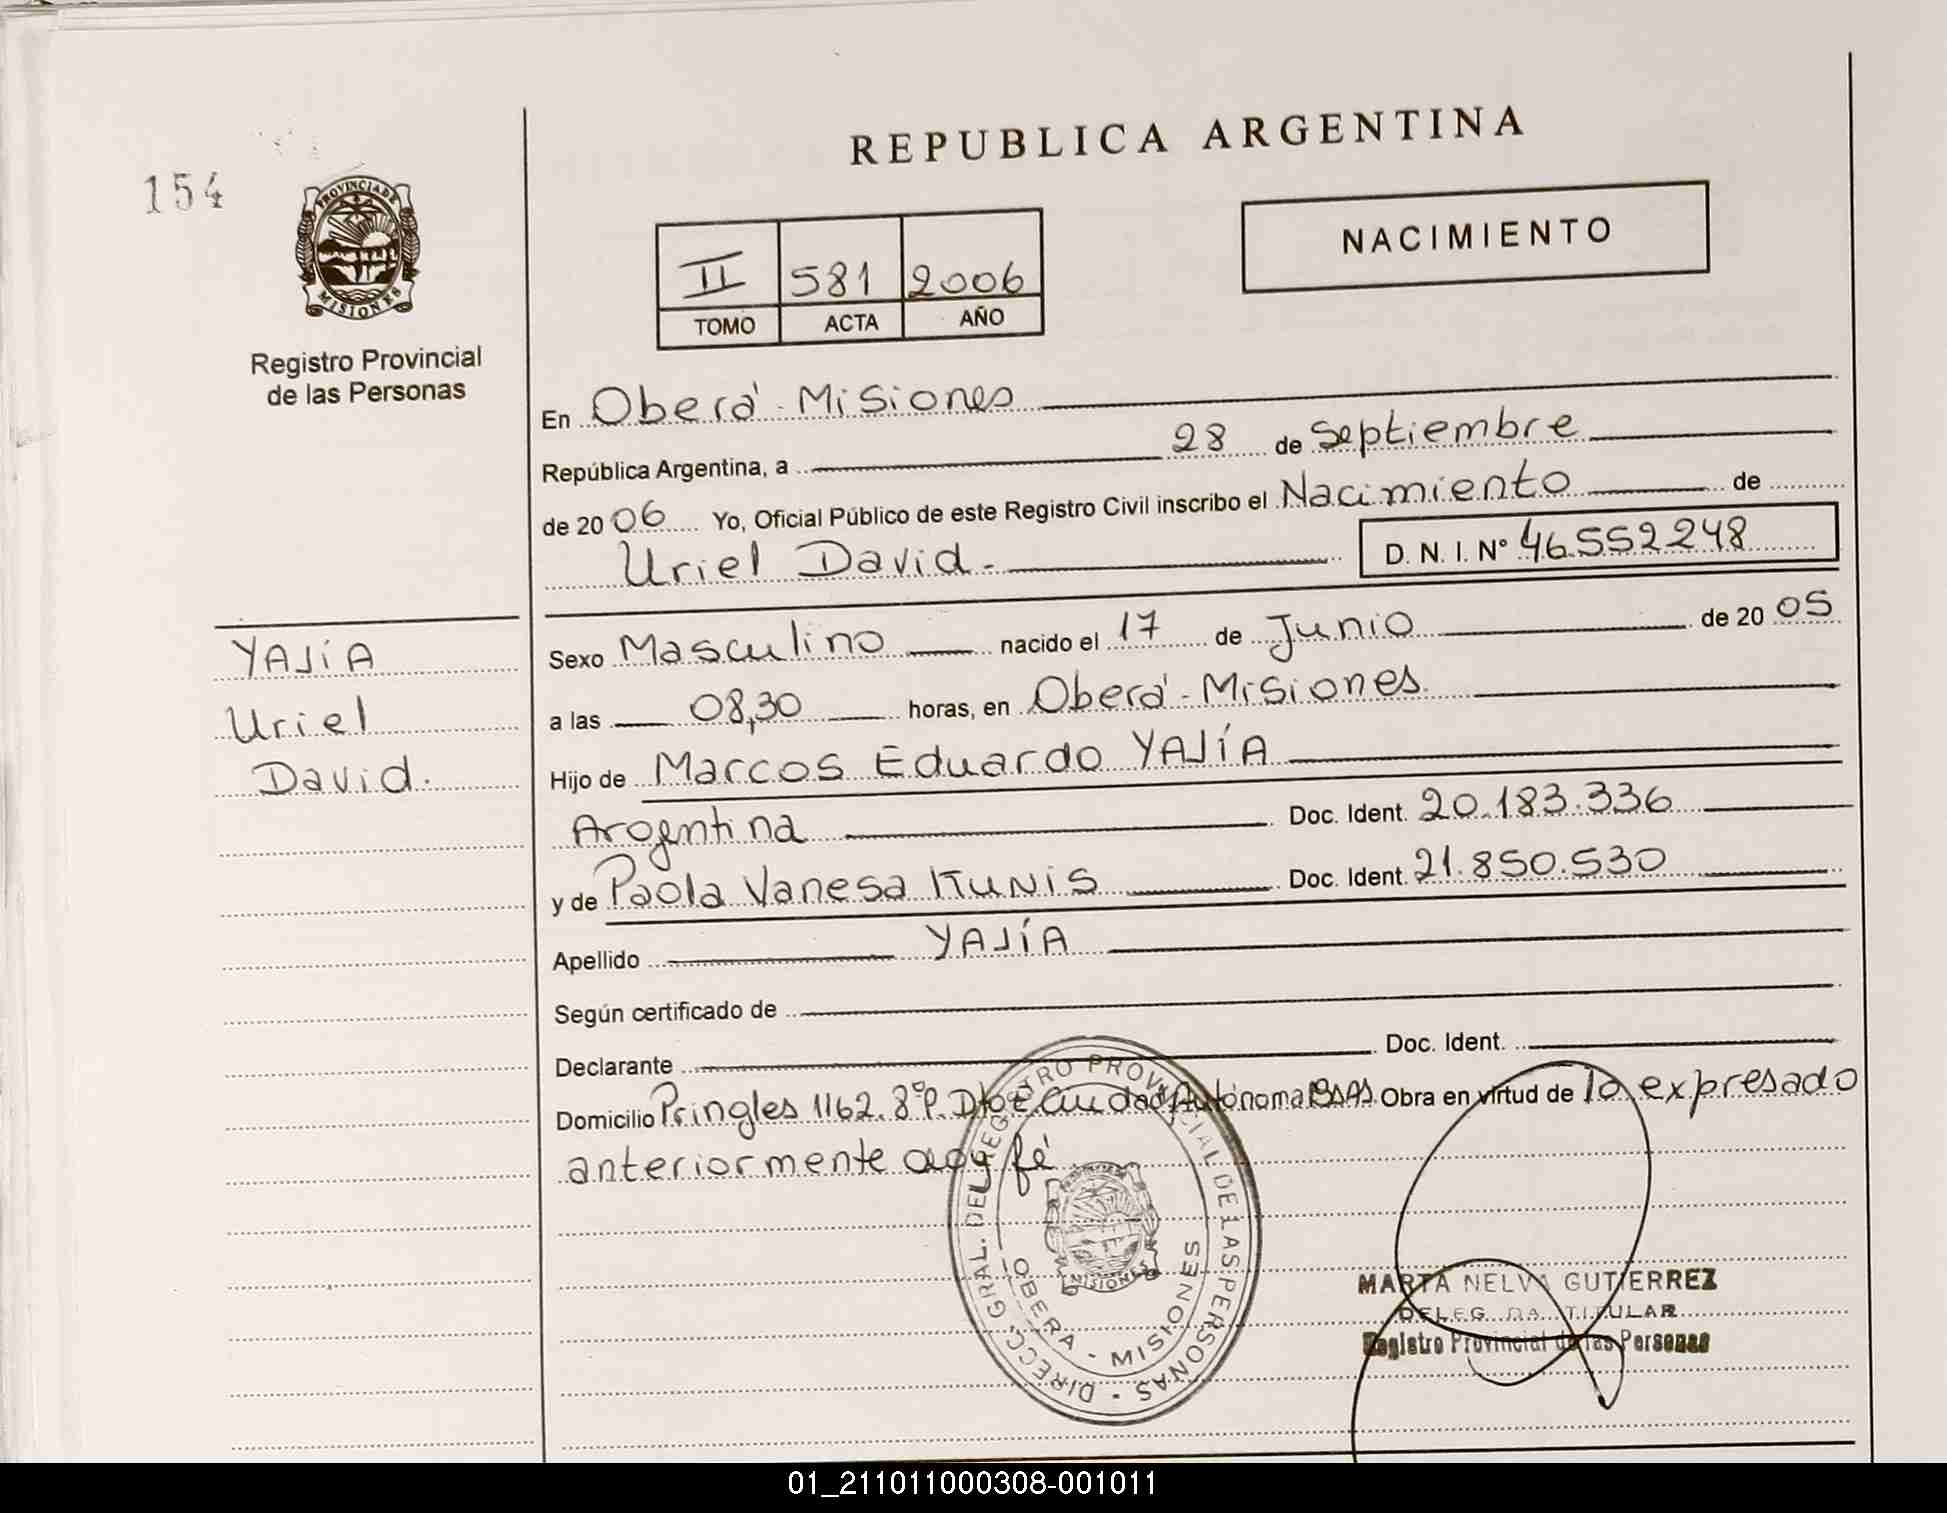 REPUBLICA ARGENTINA
154
PROVINCIA DE
MISIONES
NACIMIENTO
II 581 2006
TOMO ACTA AÑO
Registro Provincial
de las Personas
En Oberá - Misiones
República Argentina, a 28 de Septiembre
de 2006 Yo, Oficial Público de este Registro Civil inscribo el Nacimiento de
Uriel David.- D. N. I. Nº 46.552.248
YAJÍA
Uriel
David.
Sexo Masculino nacido el 17 de Junio de 2005
a las 08,30 horas, en Oberá - Misiones.
Hijo de Marcos Eduardo YAJÍA
Argentina Doc. Ident. 20.183.336
y de Paola Vanesa KUNIS Doc. Ident. 21.850.530
Apellido YAJÍA
Según certificado de
Declarante Doc. Ident.
Domicilio Pringles 1162. 8º P. Dto E Ciudad Autónoma BsAs Obra en virtud de lo expresado
anteriormente doy fé
DIRECC. GRAL. DEL REGISTRO PROVINCIAL DE LAS PERSONAS -
OBERA - MISIONES
MISIONES
MARTA NELVA GUTIERREZ
DELEGADA TITULAR
Registro Provincial de las Personas
01_211011000308-001011